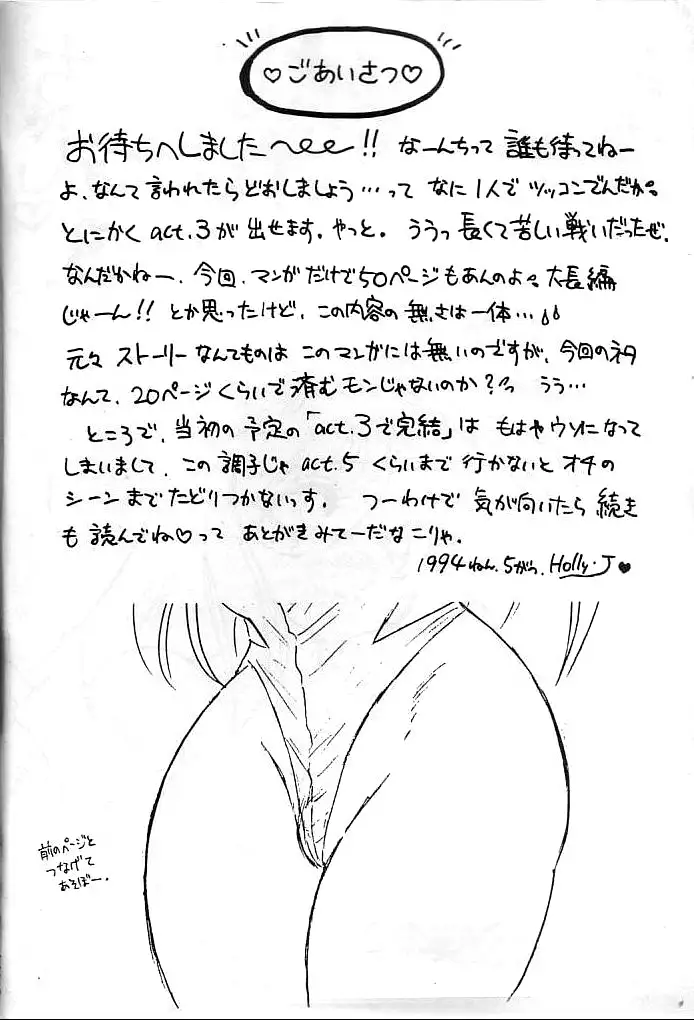 ♡ごあいさつ♡
お待ちへしました〜ee!! なーんちって 誰も待ってねー
よ、なんて言われたらどおしましょう…って なに1人で ツッコンでんだか。
とにかく act.3が 出せます。やっと。ううっ 長くて苦しい戦いだったぜ.
なんだかねー、今回、マンガだけで50ページもあんのよ。大長編
じゃーん!! とか思ったけど、この内容の無さは一体…
元々 ストーリーなんてものは このマンガには無いのですが、今回のネタ
なんて、20ページくらいで済むモンじゃないのか? うう…
ところで、当初の予定の「act.3で完結」は もはやウソになって
しまいまして、この調子じゃ act.5 くらいまで行かないと オチの
シーンまでたどりつかないっす。 つーわけで 気が向いたら続き
も読んでね♡って あとがきみてーだなこりゃ.
1994ねん.5がつ. Holly・J♥
前のページと
つなげて
あそぼー.